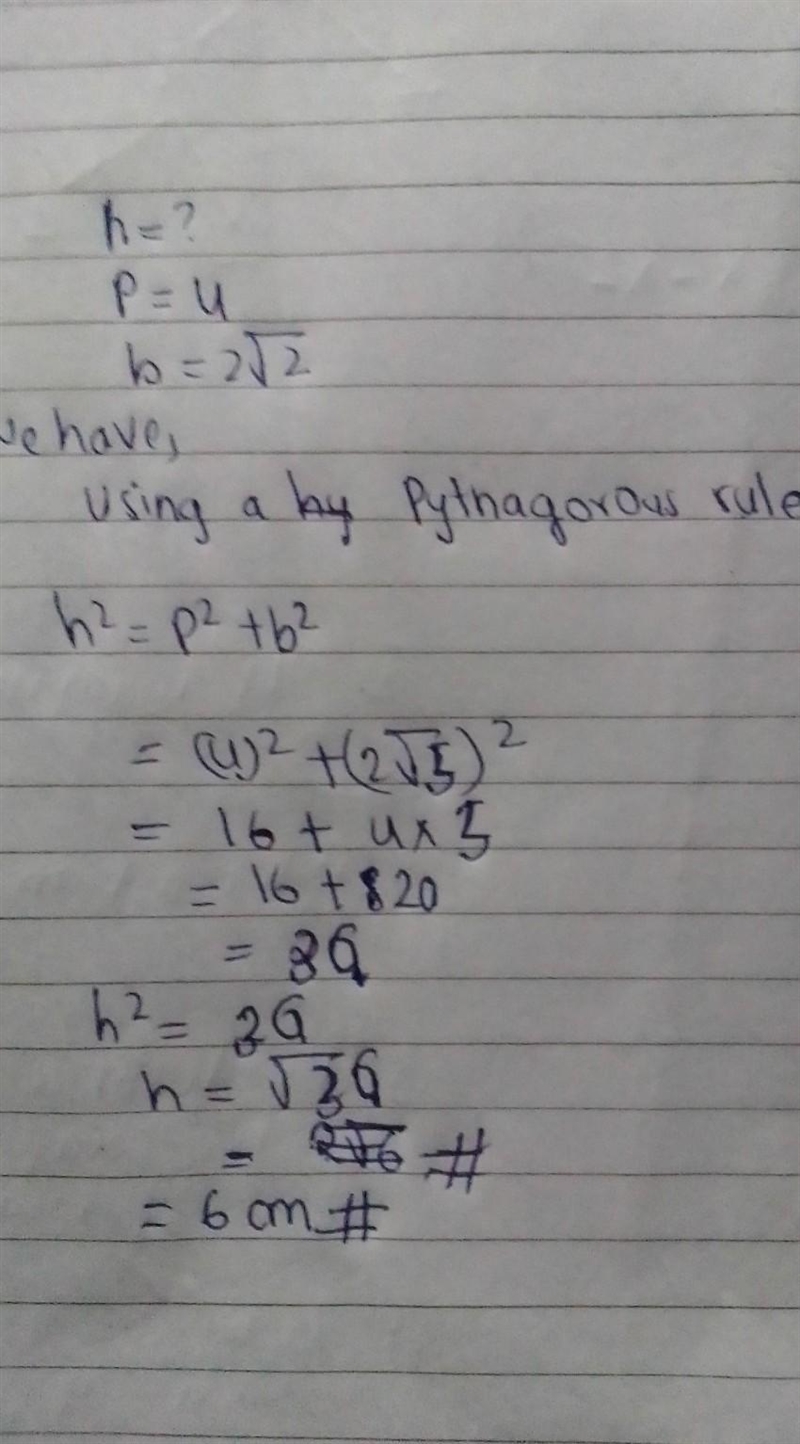 h = ?
P = 4
b = 2√2
we have,
Using a by Pythagorous rule
h² = P² + b²
= (4)² + (2√5)²
= 16 + 4 × 5
= 16 + 20
= 36
h² = 36
h = √36
= #
= 6 cm #